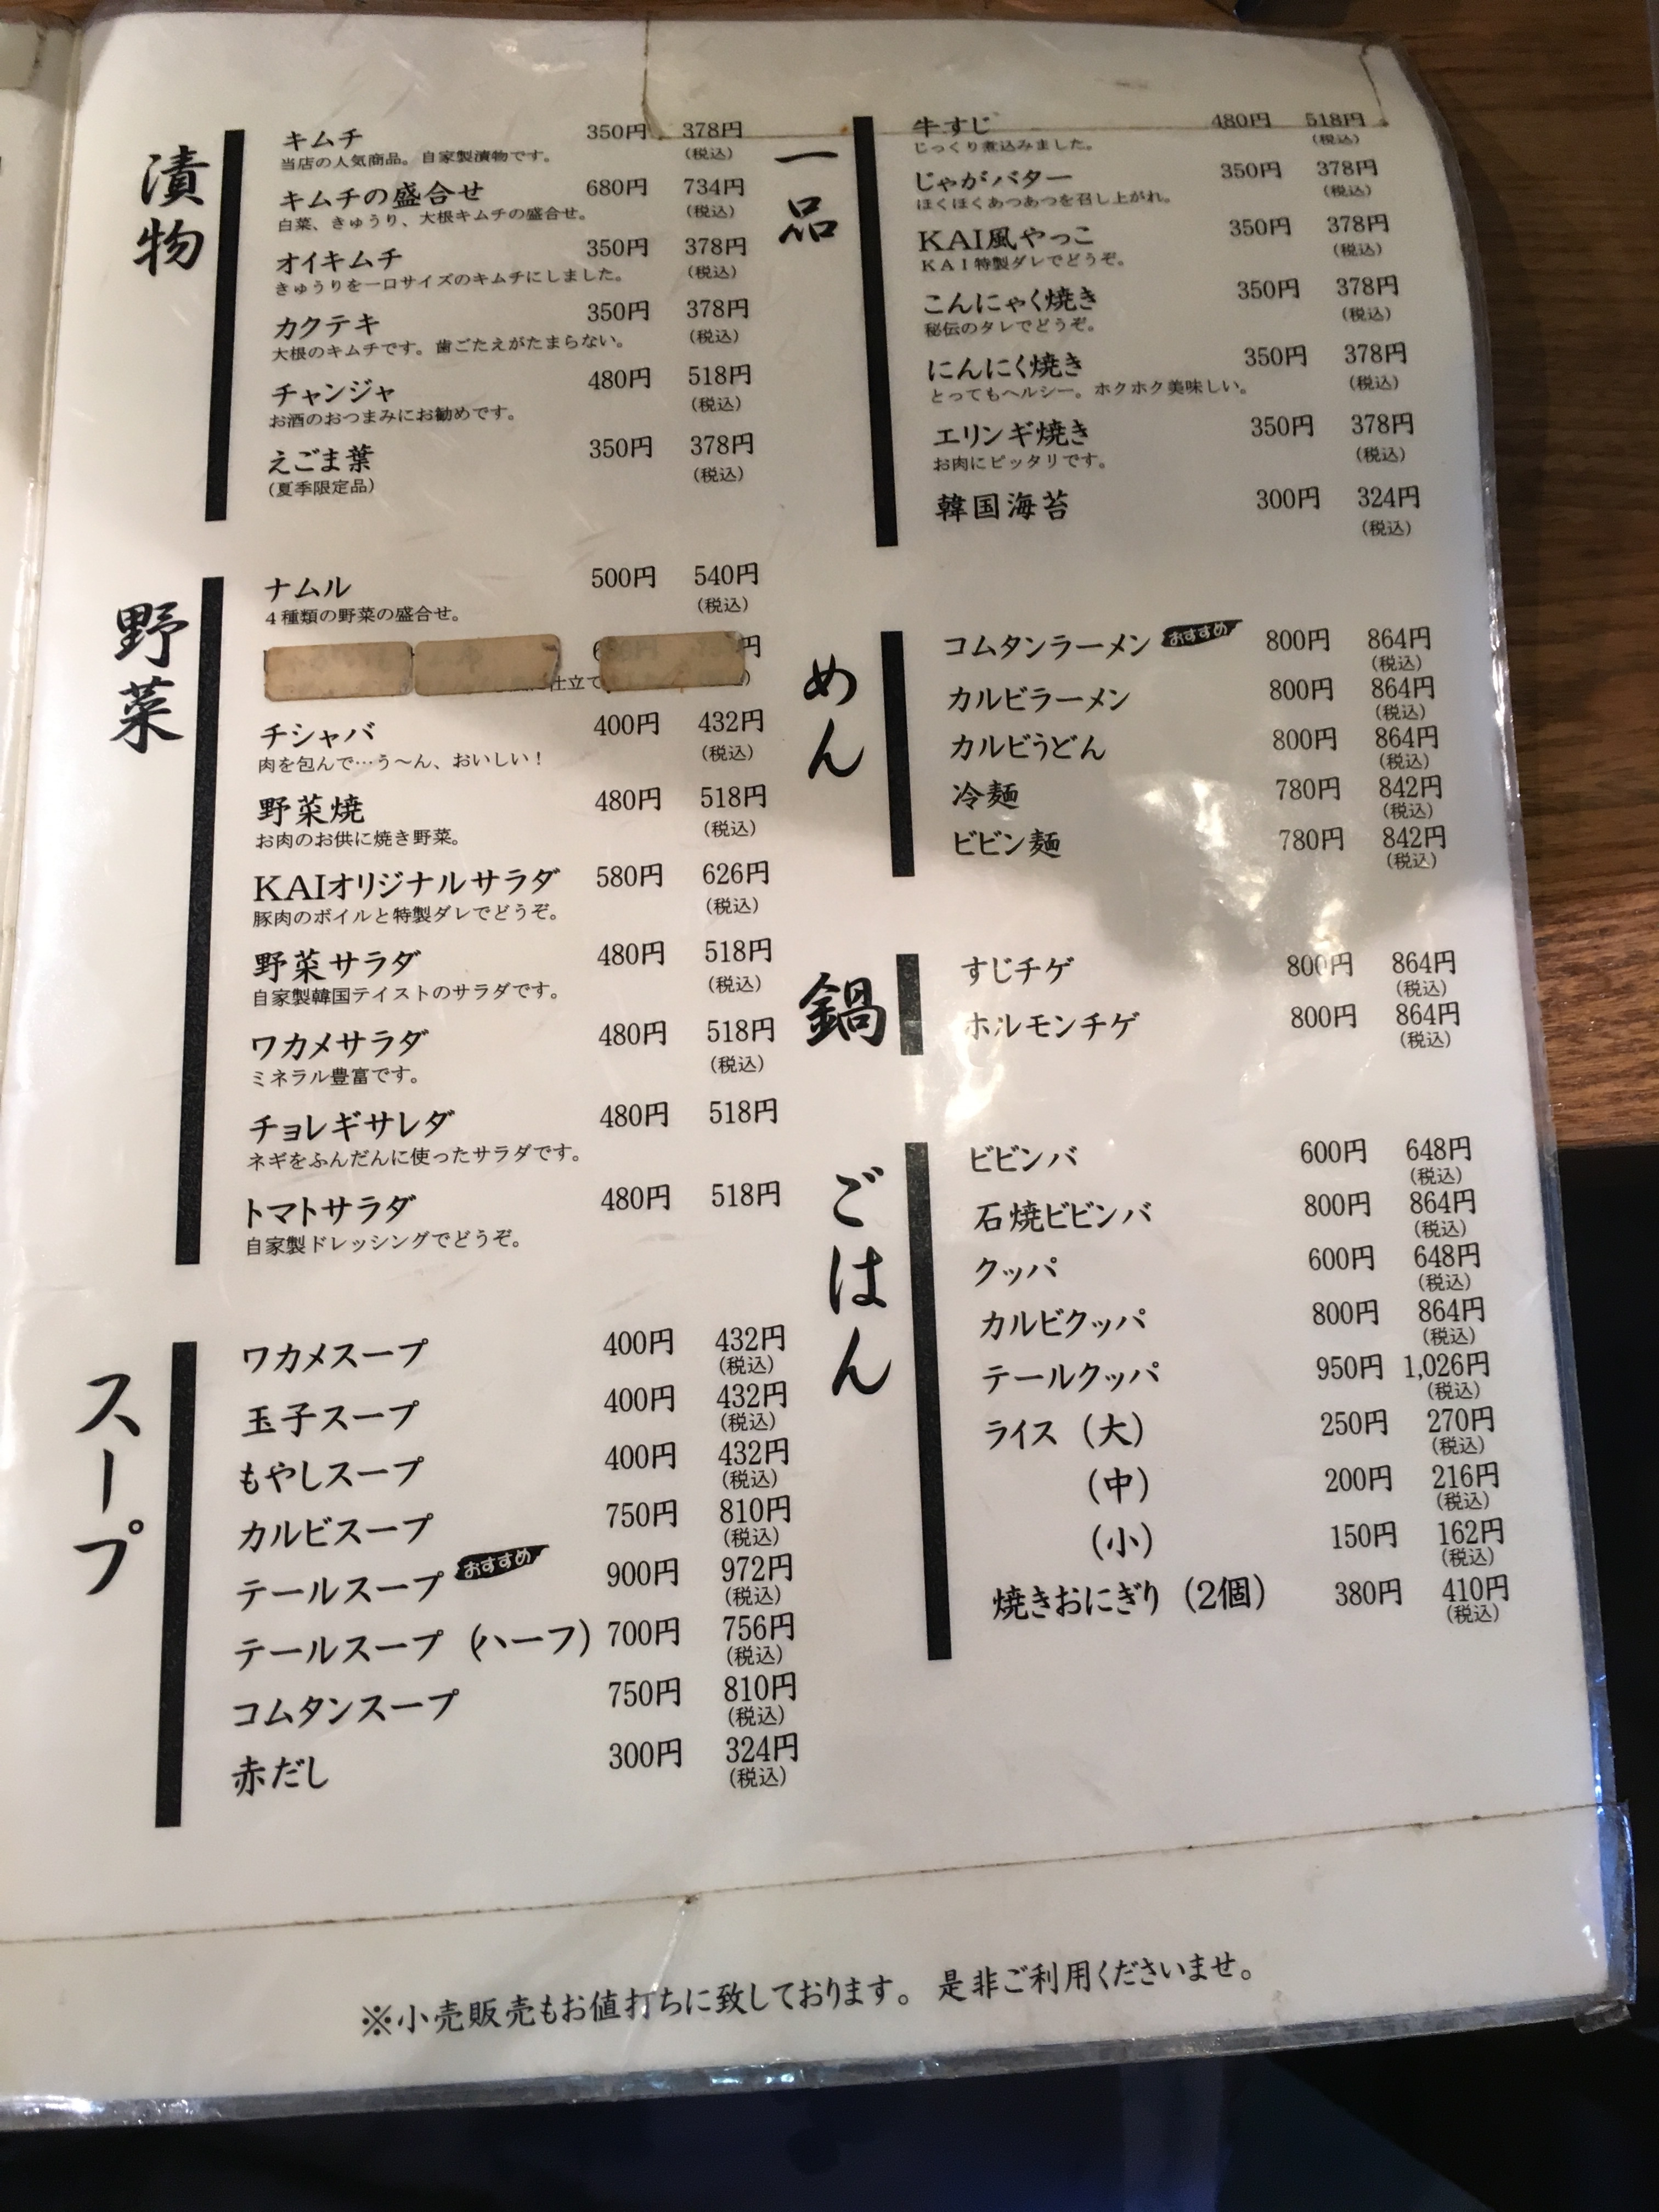 漬物
キムチ 350円 378円
当店の人気商品。自家製漬物です。 (税込)
キムチの盛合せ 680円 734円
白菜、きゅうり、大根キムチの盛合せ。 (税込)
オイキムチ 350円 378円
きゅうりを一口サイズのキムチにしました。 (税込)
カクテキ 350円 378円
大根のキムチです。歯ごたえがたまらない。 (税込)
チャンジャ 480円 518円
お酒のおつまみにお勧めです。 (税込)
えごま葉 350円 378円
(夏季限定品) (税込)
野菜
ナムル 500円 540円
4種類の野菜の盛合せ。 (税込)
円
仕立て
チシャバ 400円 432円
肉を包んで…う〜ん、おいしい！ (税込)
野菜焼 480円 518円
お肉のお供に焼き野菜。 (税込)
KAIオリジナルサラダ 580円 626円
豚肉のボイルと特製ダレでどうぞ。 (税込)
野菜サラダ 480円 518円
自家製韓国テイストのサラダです。 (税込)
ワカメサラダ 480円 518円
ミネラル豊富です。 (税込)
チョレギサレダ 480円 518円
ネギをふんだんに使ったサラダです。
トマトサラダ 480円 518円
自家製ドレッシングでどうぞ。
スープ
ワカメスープ 400円 432円
(税込)
玉子スープ 400円 432円
(税込)
もやしスープ 400円 432円
(税込)
カルビスープ 750円 810円
(税込)
テールスープ おすすめ 900円 972円
(税込)
テールスープ (ハーフ) 700円 756円
(税込)
コムタンスープ 750円 810円
(税込)
赤だし 300円 324円
(税込)
一品
牛すじ 480円 518円
じっくり煮込みました。 (税込)
じゃがバター 350円 378円
ほくほくあつあつを召し上がれ。 (税込)
KAI風やっこ 350円 378円
KAI特製ダレでどうぞ。 (税込)
こんにゃく焼き 350円 378円
秘伝のタレでどうぞ。 (税込)
にんにく焼き 350円 378円
とってもヘルシー。ホクホク美味しい。 (税込)
エリンギ焼き 350円 378円
お肉にピッタリです。 (税込)
韓国海苔 300円 324円
(税込)
めん
コムタンラーメン おすすめ 800円 864円
(税込)
カルビラーメン 800円 864円
(税込)
カルビうどん 800円 864円
(税込)
冷麺 780円 842円
(税込)
ビビン麺 780円 842円
(税込)
鍋
すじチゲ 800円 864円
(税込)
ホルモンチゲ 800円 864円
(税込)
ごはん
ビビンバ 600円 648円
(税込)
石焼ビビンバ 800円 864円
(税込)
クッパ 600円 648円
(税込)
カルビクッパ 800円 864円
(税込)
テールクッパ 950円 1,026円
(税込)
ライス (大) 250円 270円
(税込)
(中) 200円 216円
(税込)
(小) 150円 162円
(税込)
焼きおにぎり (2個) 380円 410円
(税込)
※小売販売もお値打ちに致しております。是非ご利用くださいませ。